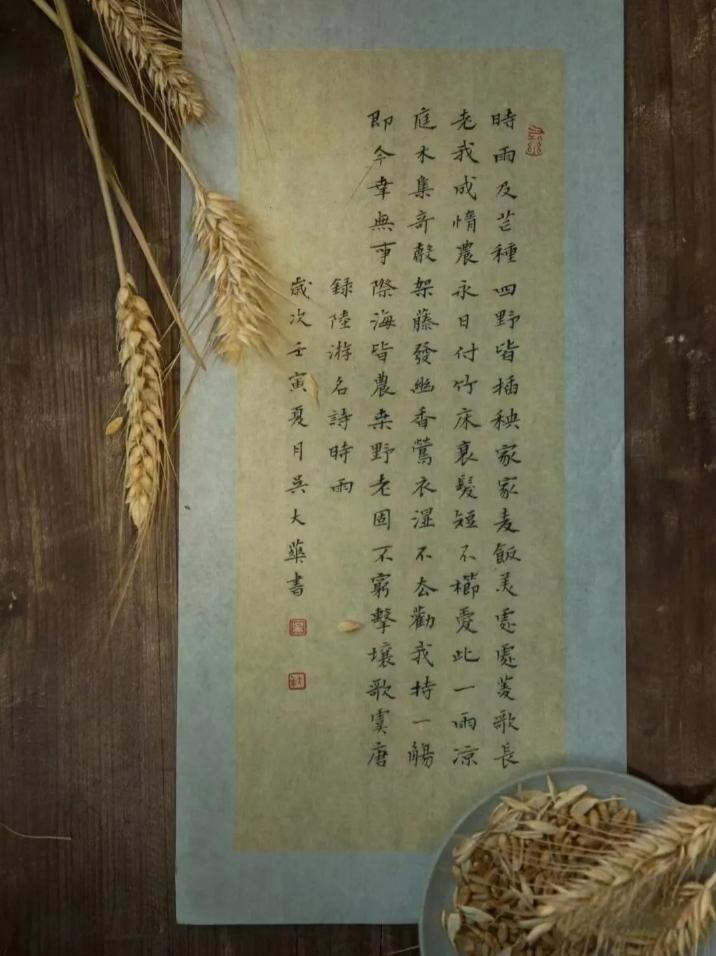 時雨及芒種四野皆插秧家家麦飯美處處菱歌長
老我成惰農永日付竹床衰髮短不櫛愛此一雨凉
庭木集奇聲架藤發幽香鶯衣湿不去勸我持一觴
即今幸無事際海皆農桒野老固不窮擊壤歌虞唐
録陸游名詩時雨
歲次壬寅夏月吳大華書